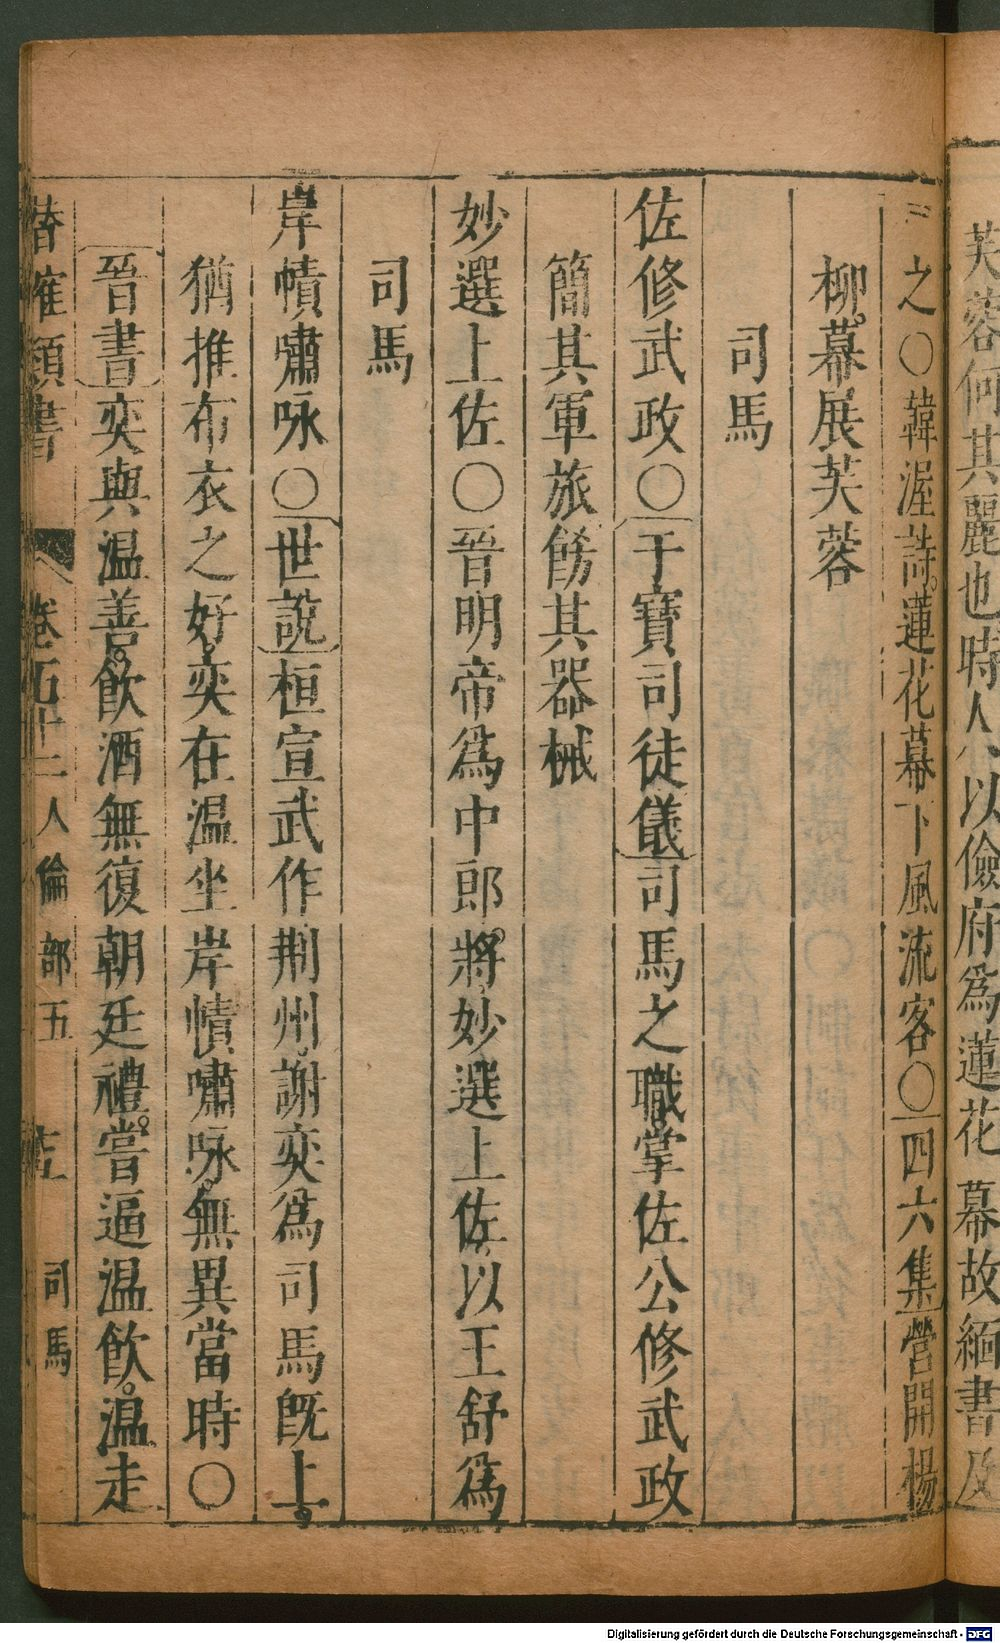 芙蓉何其麗也時人以儉府爲蓮花幕故緬書及
之〇韓渥詩蓮花幕下風流客〇四六集營開楊
柳幕展芙蓉
司馬
佐修武政〇干寶司徒儀司馬之職掌佐公修武政
簡其軍旅餝其器械
妙選上佐〇晉明帝爲中郎將妙選上佐以王舒爲
司馬
岸幘嘯咏〇世說桓宣武作荆州謝奕爲司馬旣上
猶推布衣之好奕在温坐岸幘嘯咏無異當時〇
晉書奕與温善飲酒無復朝廷禮嘗逼温飲温走
卷五十二 人倫部五 司馬
Digitalisierung gefördert durch die Deutsche Forschungsgemeinschaft - DFG